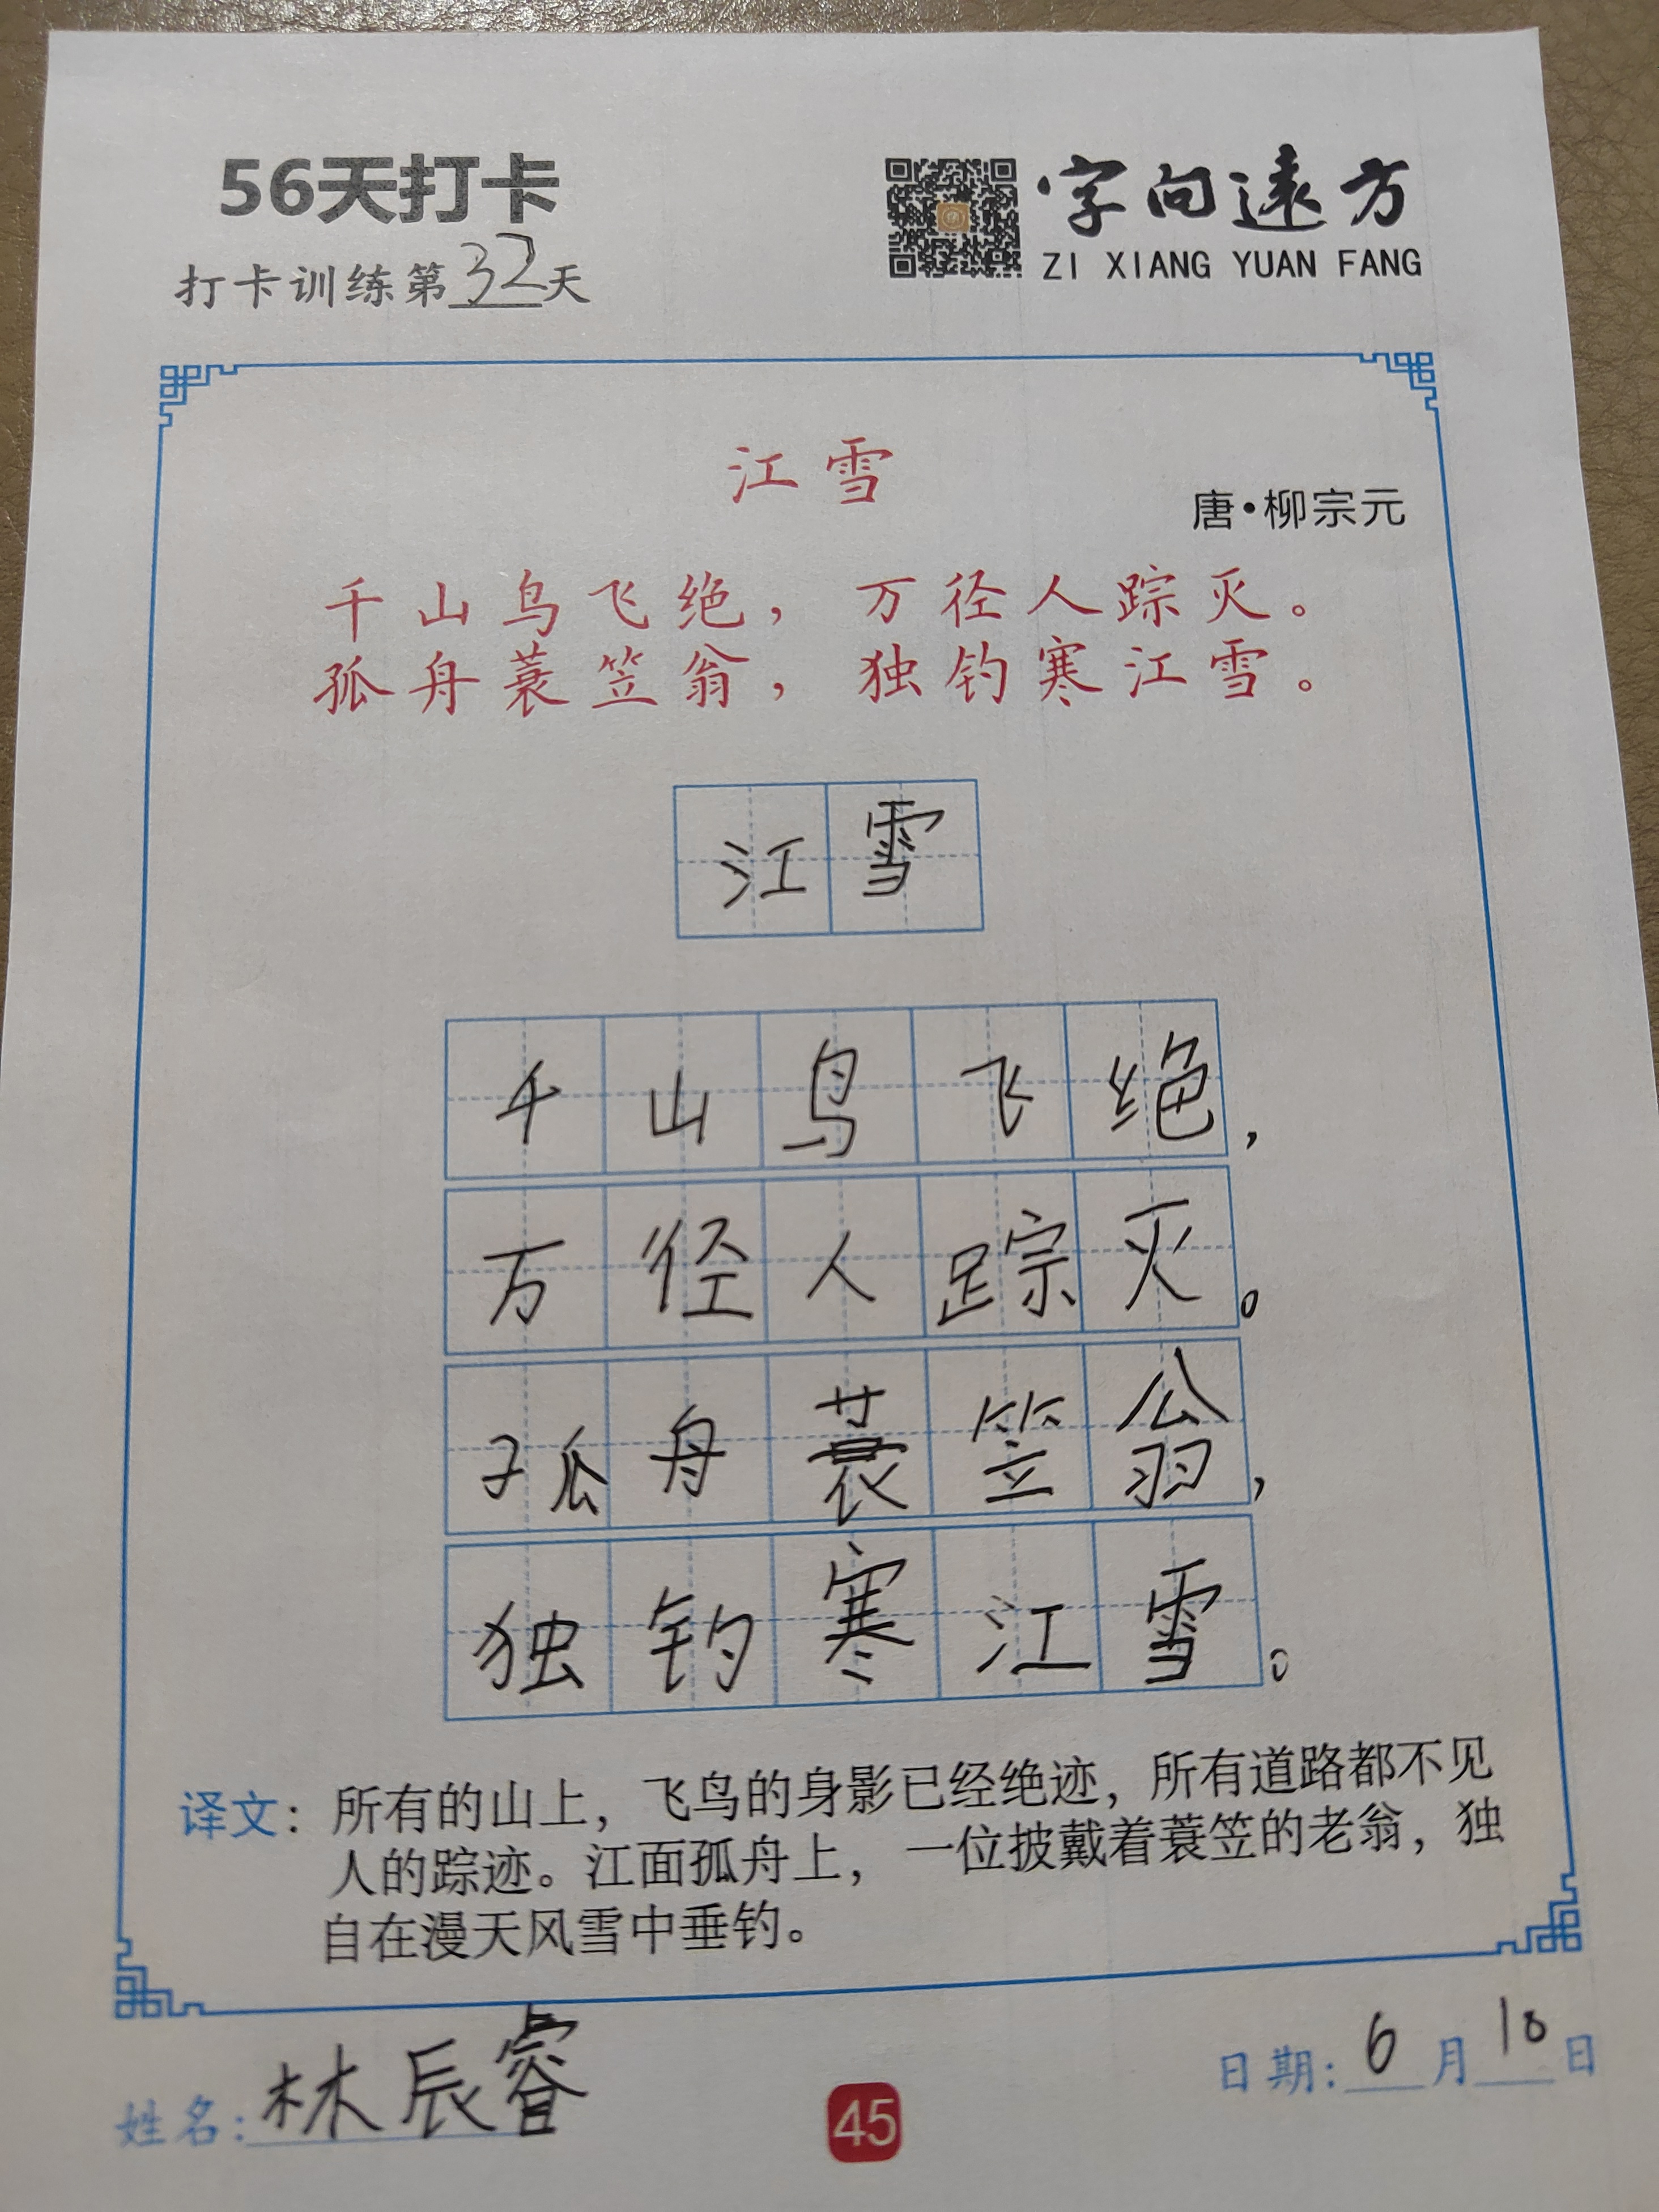 56天打卡
打卡训练第32天
字向遠方
ZI XIANG YUAN FANG
江雪
唐·柳宗元
千山鸟飞绝，万径人踪灭。
孤舟蓑笠翁，独钓寒江雪。
江雪
千山鸟飞绝，
万径人踪灭。
孤舟蓑笠翁，
独钓寒江雪。
译文：所有的山上，飞鸟的身影已经绝迹，所有道路都不见
人的踪迹。江面孤舟上，一位披戴着蓑笠的老翁，独
自在漫天风雪中垂钓。
姓名：林辰睿
日期：6月10日
45